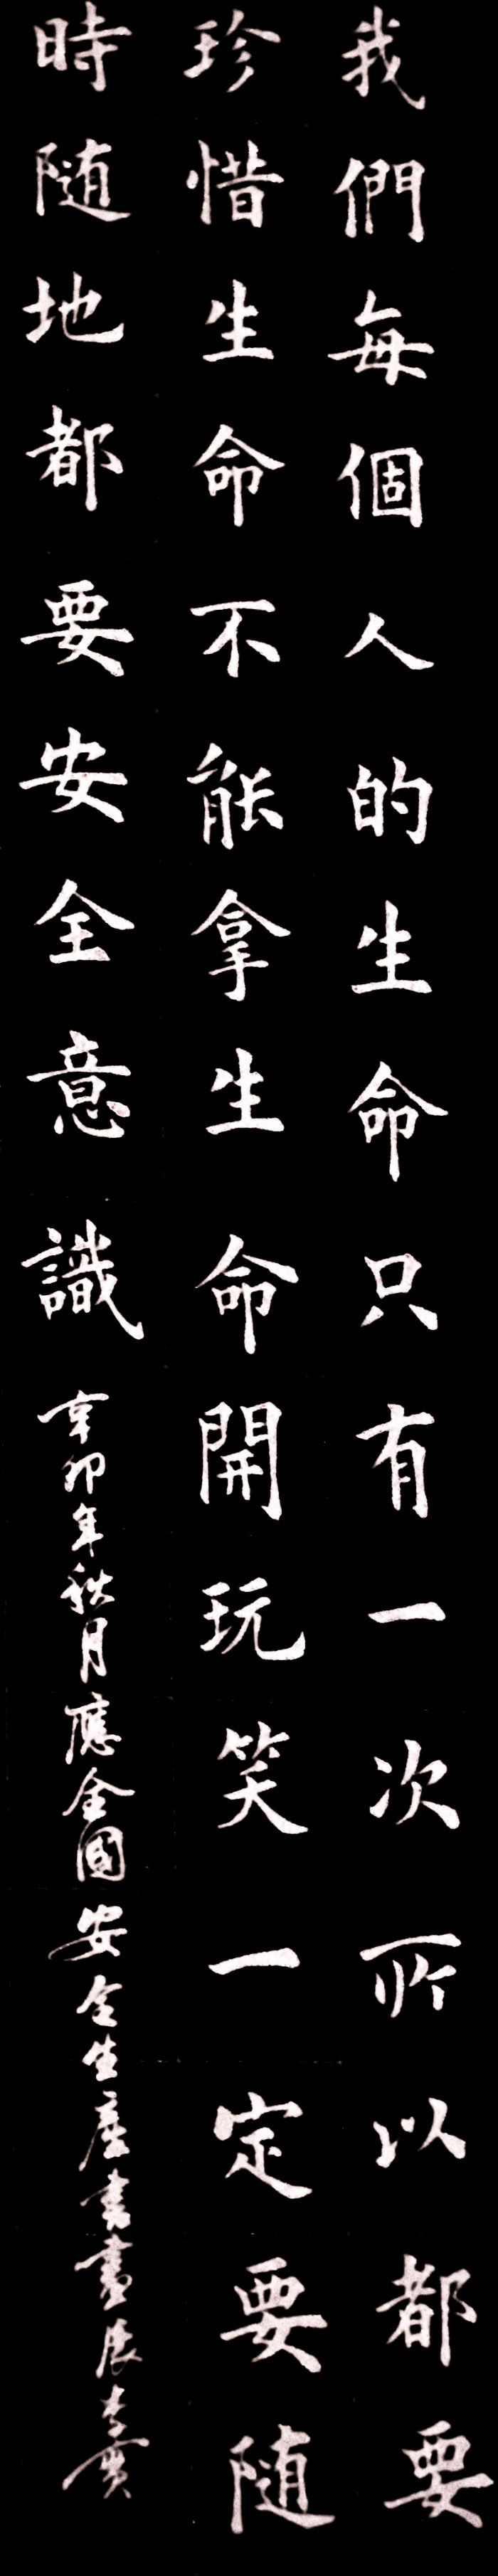 我們每個人的生命只有一次所以都要
珍惜生命不能拿生命開玩笑一定要随
時随地都要安全意識
辛卯年秋月應全國安全生產書畫展李實